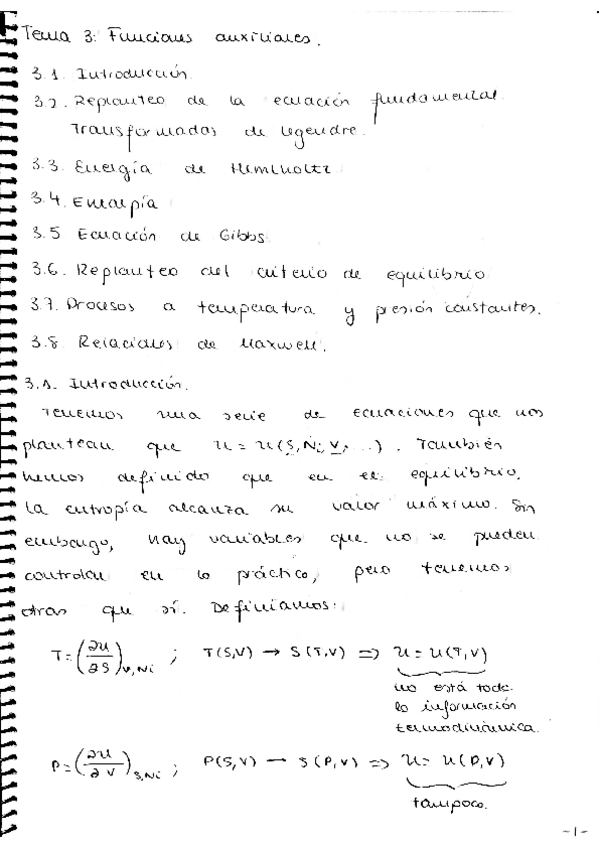 Tema 3: Funciones auxiliares.
3.1. Introducción.
3.2. Replanteo de la ecuación fundamental.
Transformadas de legendre.
3.3. Energía de Hemlholtz
3.4. Entalpía
3.5 Ecuación de Gibbs
3.6. Replanteo del criterio de equilibrio
3.7. Procesos a temperatura y presión constantes.
3.8 Relaciones de Maxwell.
3.1. Introducción.
Tenemos una serie de ecuaciones que nos
plantean que U = U(S, Ni, V, ...). También
hemos definido que en el equilibrio,
la entropía alcanza su valor máximo. Sin
embargo, hay variables que no se pueden
controlar en la práctica, pero tenemos
otras que sí. Definíamos:
T = (∂U/∂S)V,Ni ; T(S,V) → S(T,V) ⇒ U = U(T,V)
no está toda
la información
termodinámica.
P = (∂U/∂V)S,Ni ; P(S,V) → S(P,V) ⇒ U = U(P,V)
tampoco.
-1-